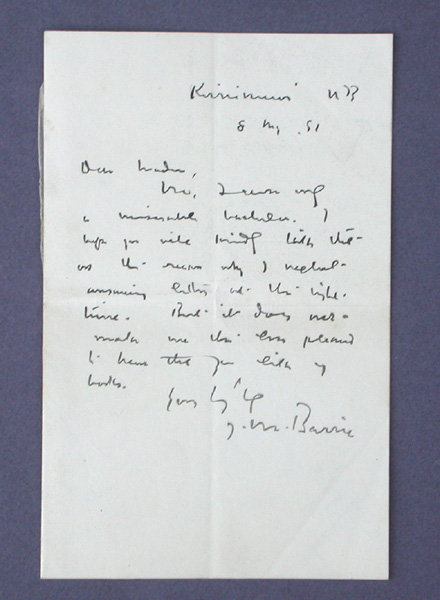 Kirriemuir N.B.
8 Aug. 91
Dear Madam,
No, I am only
a miserable bachelor. I
hope you will kindly take this
as the reason why I neglect
answering letters at the right
time. But it does not
make me the less pleased
to hear that you like my
books.
Yours
J. M. Barrie